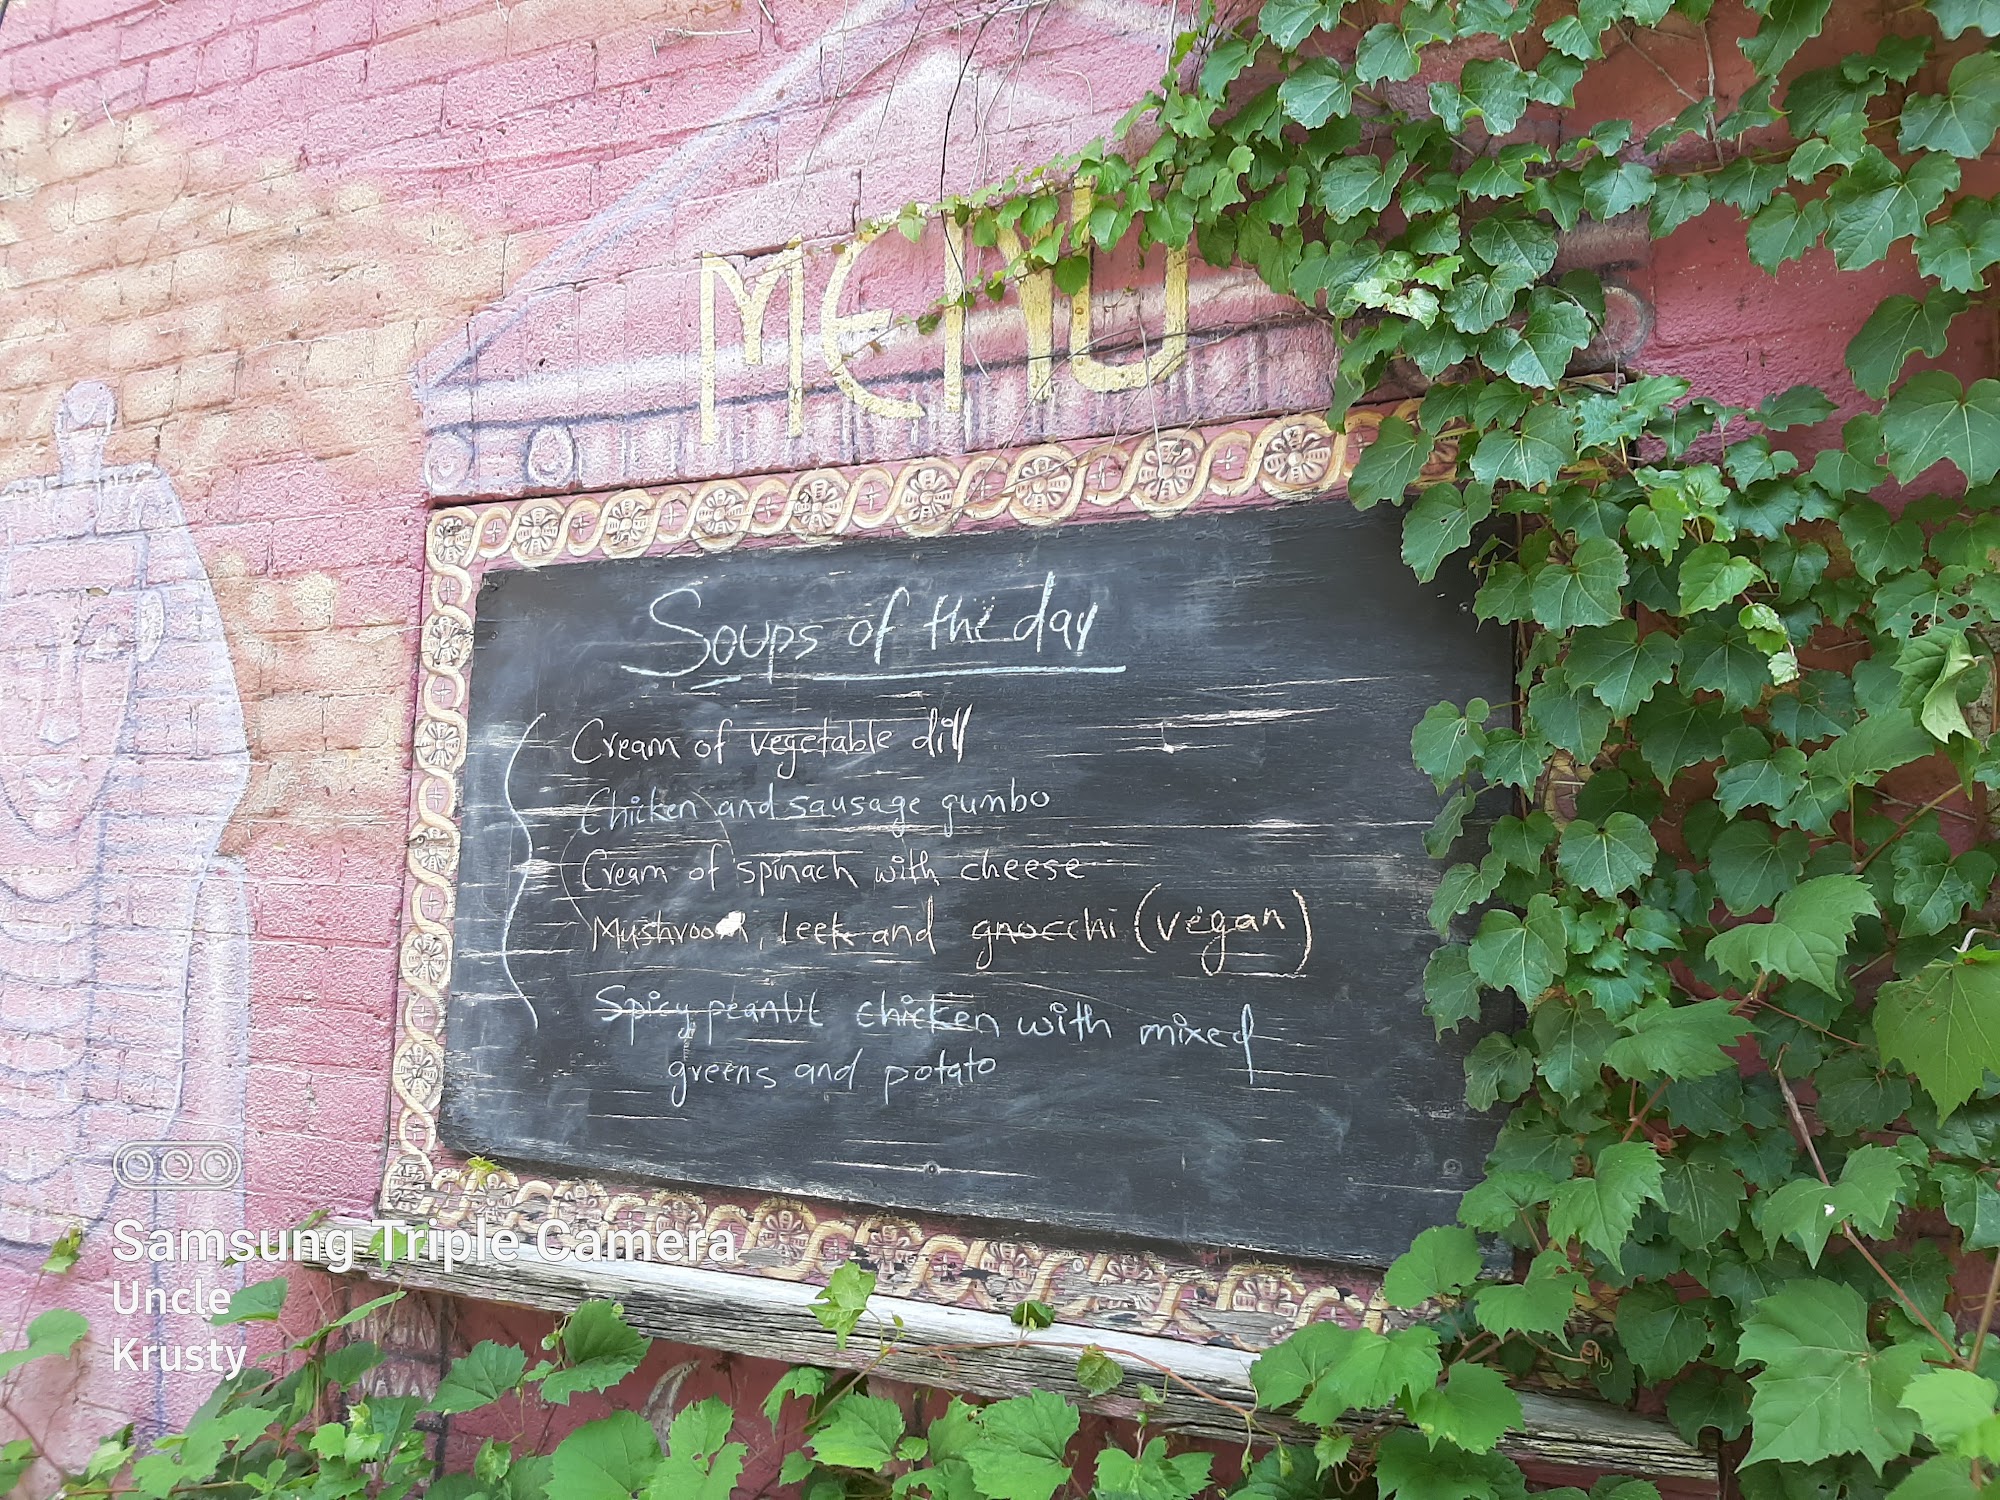 MENU
Soups of the day
Cream of vegetable dill
Chicken and sausage gumbo
Cream of spinach with cheese
Mushroom, leek and gnocchi (vegan)
Spicy peanut chicken with mixed
greens and potato
Samsung Triple Camera
Uncle
Krusty